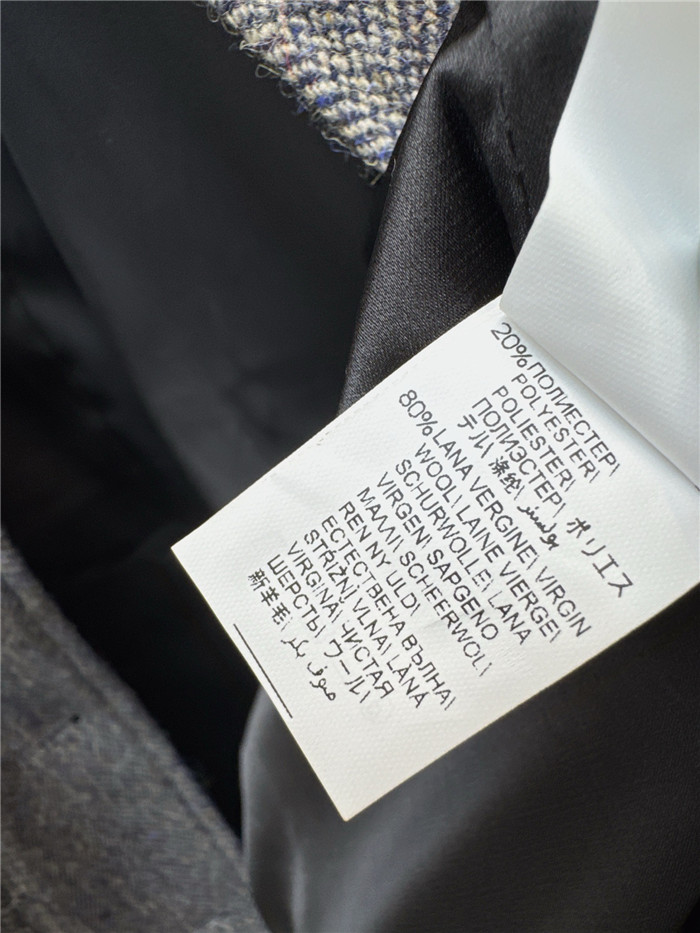 20%ПОЛИЕСТЕР\
POLYESTER\
POLIESTER\
ПОЛИЭСТЕР\ ポリエス
テル\ 涤纶\ بوليستر
80%LANA VERGINE\ VIRGIN
WOOL\ LAINE VIERGE\
SCHURWOLLE\ LANA
VIRGEN\ SAPGENO
MAΛΛI\ SCHEERWOL\
REN NY ULD\
ЕСТЕСТВЕНА ВЪЛНА\
STRIŽNÍ VLNA\ LÂNA
VIRGINA\ ЧИСТАЯ
ШЕРСТЬ\ ワール\
新羊毛\ صوف بكر